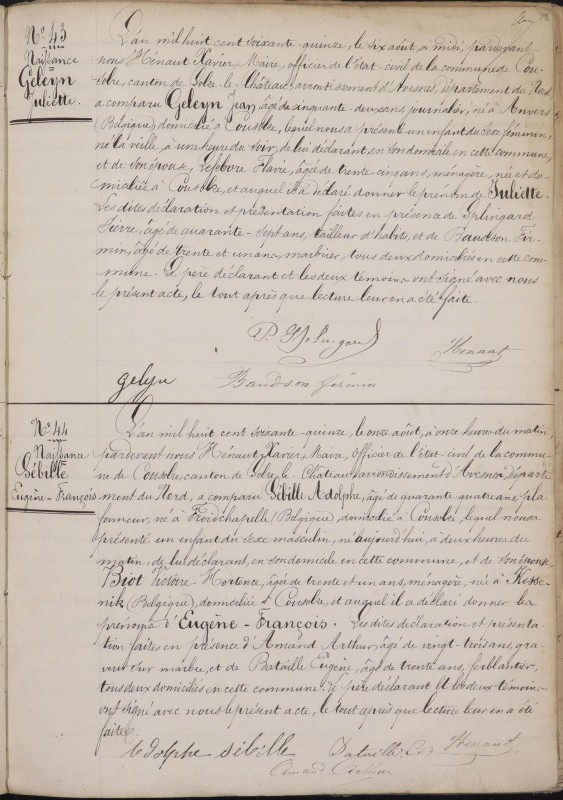 N° 43
Naissance
Geleyn
Juliette.
L'an mil huit cent soixante-quinze, le six août, à midi, pardevant
nous Hénaut Xavier, Maire, officier de l'état-civil de la commune de Cou-
solre, canton de Solre-le-Château, arrondissement d'Avesnes, département du Nord,
a comparu Geleyn Jean, âgé de cinquante-deux ans, journalier, né à Anvers
(Belgique), domicilié à Cousolre, lequel nous a présenté un enfant du sexe féminin,
né la veille, à une heure du soir, de lui déclarant, en son domicile en cette commune,
et de son épouse, Lefebvre Flavie, âgée de trente-cinq ans, ménagère, née et do-
miciliée à Cousolre, et auquel il a déclaré donner le prénom de Juliette.
Les dites déclaration et présentation faites en présence de Splingard
Pierre, âgé de quarante-sept ans, tailleur d'habits, et de Baudson Fir-
min, âgé de trente et un ans, marbrier, tous deux domiciliés en cette com-
mune. Le père déclarant et les deux témoins ont signé avec nous
le présent acte, le tout après que lecture leur en a été faite.
P. Splingard
Hénaut
gelyn
Baudson firmin
N° 44
Naissance
Sébille
Eugène-François
L'an mil huit cent soixante-quinze, le onze août, à onze heures du matin,
pardevant nous Hénaut Xavier, Maire, officier de l'état-civil de la commu-
ne de Cousolre, canton de Solre-le-Château, arrondissement d'Avesnes, départe-
ment du Nord, a comparu Sébille Adolphe, âgé de quarante quatre ans, pla-
fonneur, né à Froidchapelle (Belgique), domicilié à Cousolre, lequel nous a
présenté un enfant du sexe masculin, né aujourd'hui, à deux heures du
matin, de lui déclarant, en son domicile en cette commune, et de son épouse,
Biot Victoire-Hortence, âgée de trente et un ans, ménagère, née à Kesse-
nik (Belgique), domiciliée à Cousolre, et auquel il a déclaré donner les
prénoms d'Eugène-François. Les dites déclaration et présenta-
tion faites en présence d'Amand Arthur, âgé de vingt-trois ans, gra-
veur sur marbre, et de Bataille Eugène, âgé de trente ans, ferblantier,
tous deux domiciliés en cette commune. Le père déclarant et les deux témoins
ont signé avec nous le présent acte, le tout après que lecture leur en a été
faite.
Adolphe sébille
Bataille
Hénaut
Amand Arthur